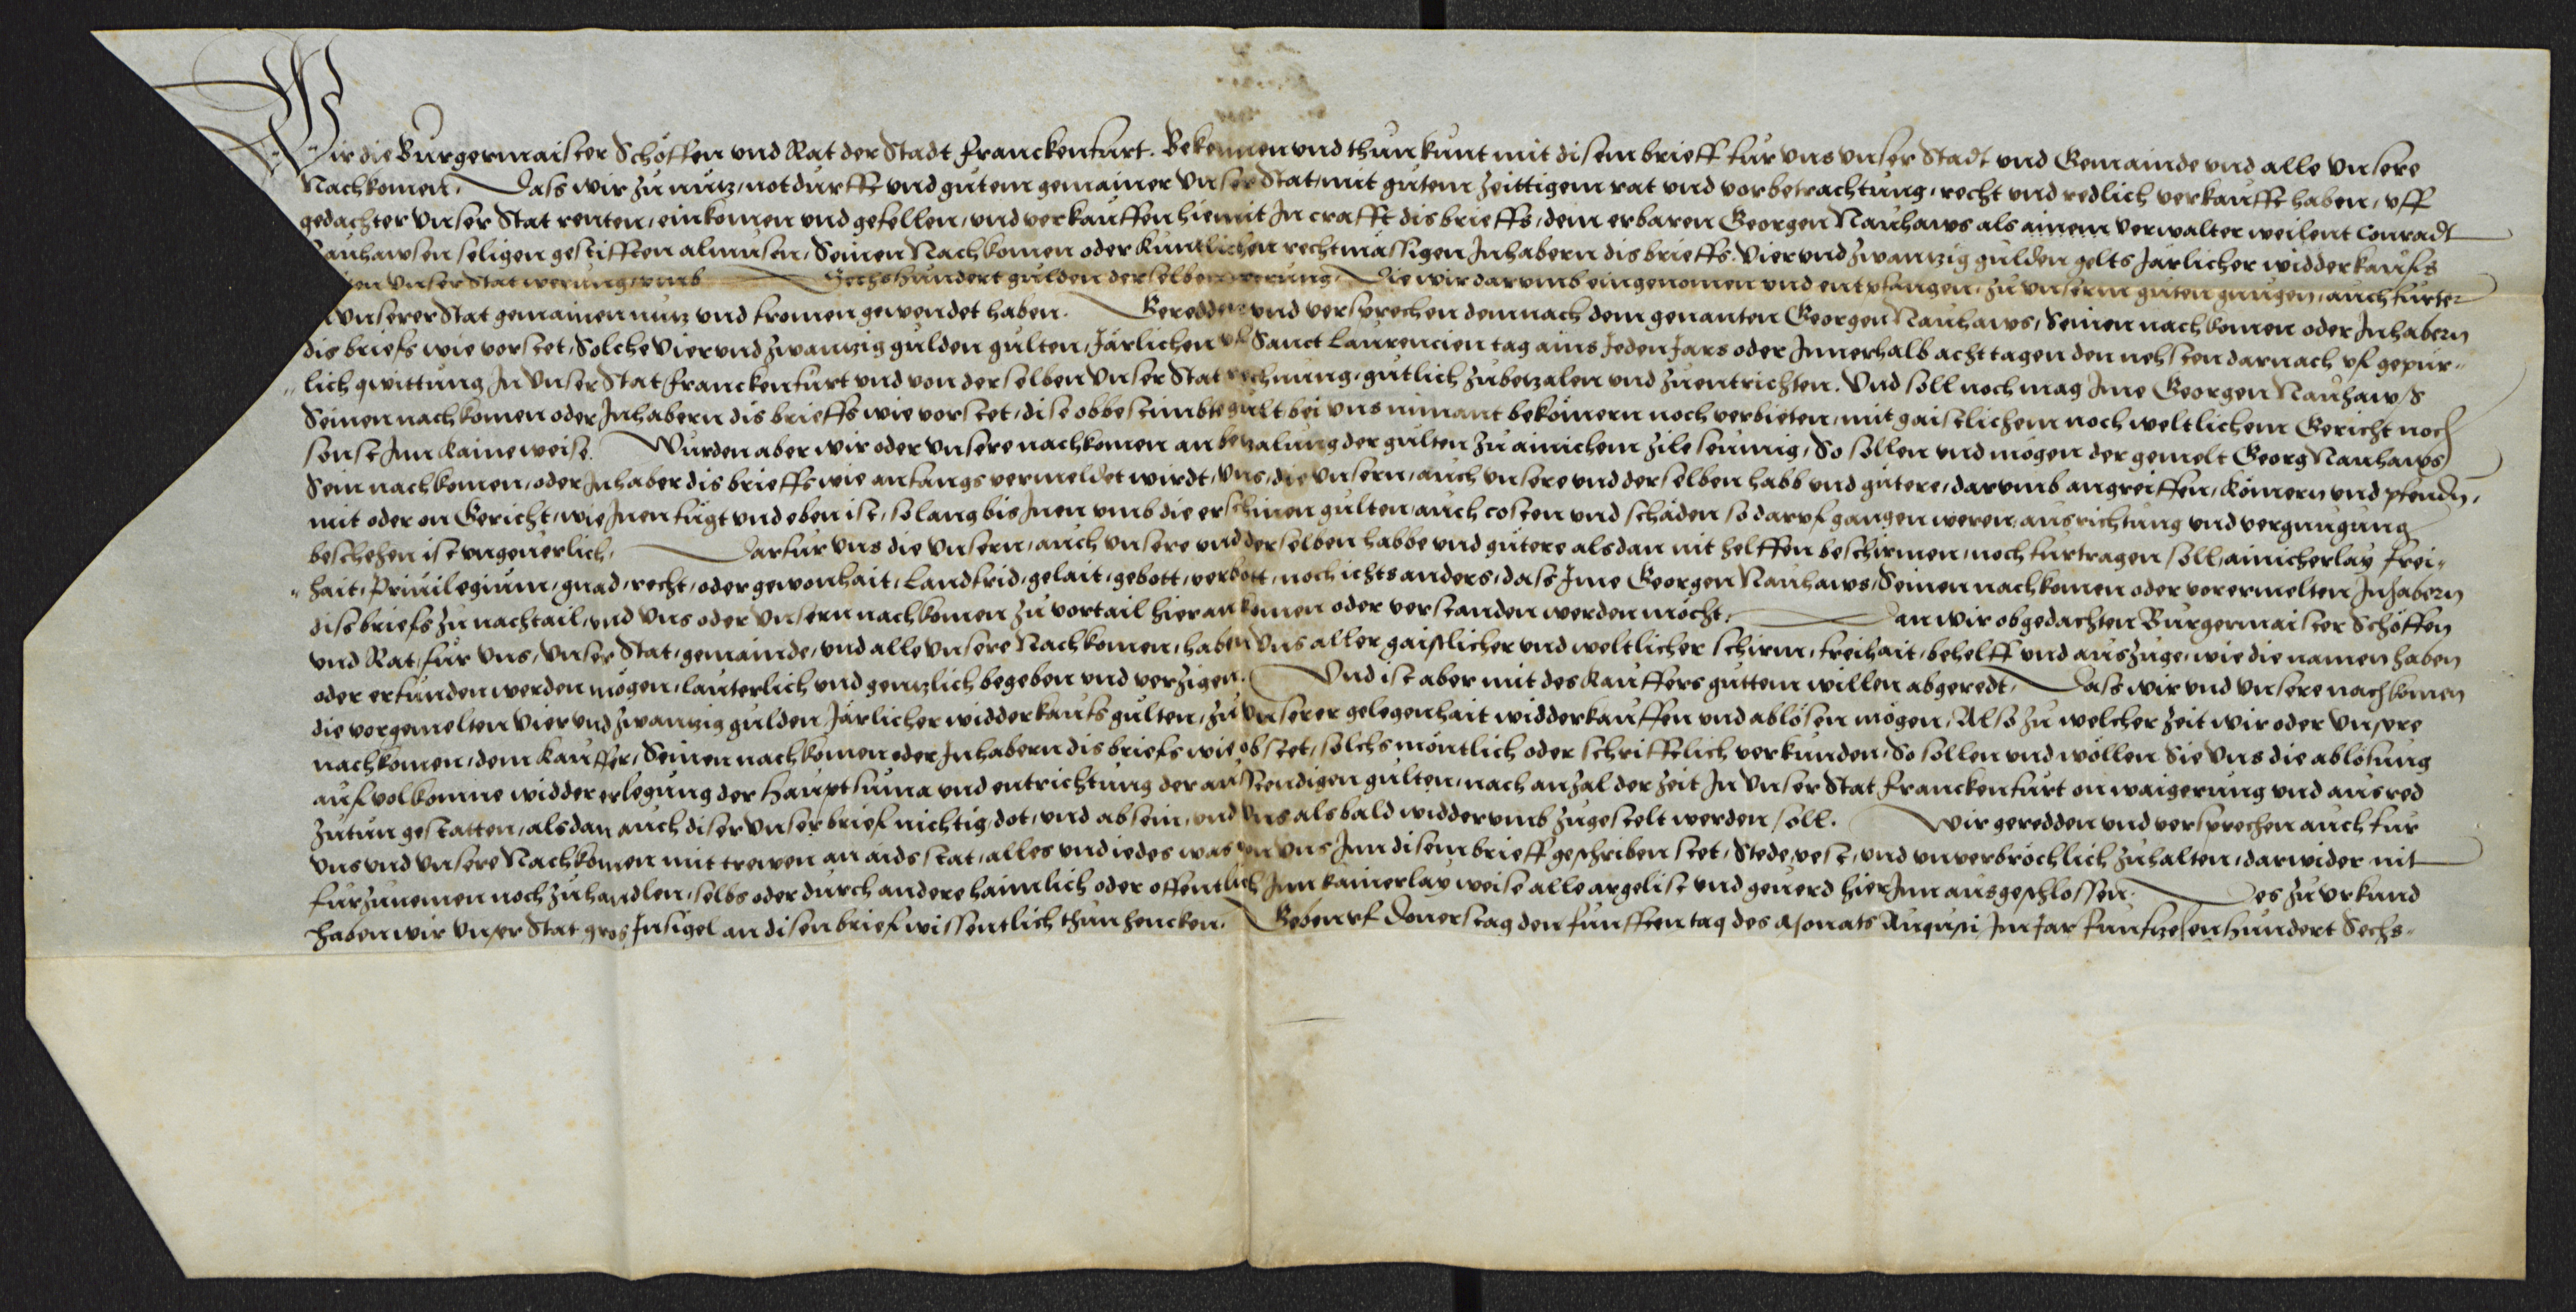 Wir die Burgermaister Schöffen vnd Rat der Stadt Franckenfurt. Bekennen vnd thun kunt mit disem brieff fur vns vnser Stadt vnd Gemainde vnd alle vnsere
Nachkomen. Dass wir zu nutz, notdurfft vnd gutem gemainer vnser Stat, mit gutem zeittigem rat vnd vorbetrachtung, recht vnd redlich verkaufft haben, vff
gedachter vnser Stat renten, einkomen vnd gefellen, vnd verkauffen hiemit In crafft dis brieffs, dem erbaren Georgen Nauhaws als ainem verwalter weilent Conradt
auhawsen seligen gestifften almusen, Seinen Nachkomen oder kuntlichen rechtmässigen Inhabern dis brieffs. Vier vnd zwantzig gulden gelts Järlicher widderkaufs
en vnser Stat werung, vmb Sechshundert gulden derselben werung, Die wir darumb eingenomen vnd entpfangen, zu vnserm guten gnugen, auch furter
vnserer Stat gemainen nutz vnd fromen gewendet haben. Geredden vnd versprechen demnach dem genanten Georgen Nauhaws, Seinen nachkomen oder Inhabern
dis briefs wie vorstet, Solche Vier vnd zwantzig gulden gulten, Järlichen vf Sanct Laurencien tag ains Jeden Jars oder Innerhalb acht tagen den nehsten darnach vf gepur-
lich qwittung, In vnser Stat Franckenfurt vnd von derselben vnser Stat rechnung, gutlich zubetzalen vnd zuentrichten. Vnd soll noch mag Ime Georgen Nauhaws
Seinen nachkomen oder Inhabern dis brieffs wie vorstet, dise obbestimbte gult bei vns nimant bekömern noch verbieten, mit gaistlichem noch weltlichem Gericht noch
sonst Inn kaine weise. Wurden aber wir oder vnsere nachkomen an betzalung der gulten zu ainichem zile seumig, So sollen vnd mögen der gemelt Georg Nauhaws
Sein nachkomen, oder Inhaber dis brieffs wie anfangs vermeldet wirdt, vns, die vnsern, auch vnsere vnd derselben habb vnd gütere, darumb angreiffen, kömern vnd pfendn,
mit oder on Gericht, wie Inen fügt vnd eben ist, solang bis Inen vmb die erschinen gulten, auch costen vnd schäden so daruf gangen weren, ausrichtung vnd vergnugung
beschehen ist vngeuerlich. Darfur vns die vnsern, auch vnsere vnd derselben habbe vnd gütere alsdan nit helffen beschirmen, noch furtragen soll, ainicherlay frei-
hait, Priuilegium, gnad, recht, oder gewonhait, Landfrid, gelait, gebott, verbott, noch ichts anders, dass Ime Georgen Nauhaws, Seinen nachkomen oder vorermelten Inhabern
dis briefs zu nachtail, vnd vns oder vnsern nachkomen zu vortail hieran komen oder verstanden werden möcht. Dan wir obgedachten Burgermaister Schöffen
vnd Rat, fur vns, vnser Stat, gemainde, vnd alle vnsere Nachkomen, haben vns aller gaistlicher vnd weltlicher schirm, freihait, behelff vnd auszuge, wie die namen haben
oder erfunden werden mögen, lauterlich vnd gentzlich begeben vnd verzigen. Vnd ist aber mit des kauffers guttem willen abgeredt, Dass wir vnd vnsere nachkomen
die vorgemelten Vier vnd zwantzig gulden Järlicher widderkaufs gulten, zu vnserer gelegenhait widderkauffen vnd ablösen mögen, Also zu welcher zeit wir oder vnsere
nachkomen, dem kauffer, Seinen nachkomen oder Inhabern dis briefs wie obstet, solchs möntlich oder schrifftlich verkunden, So sollen vnd wöllen Sie vns die ablösung
auf volkomne widdererlegung der Hauptsuma vnd entrichtung der ausstendigen gulten, nach anzal der zeit In vnser Stat Franckenfurt on waigerung vnd ausred
zutun gestatten, alsdan auch diser vnser brief nichtig, dot, vnd ab sein, vnd vns alsbald widderumb zugestelt werden soll. Wir geredden vnd versprechen auch fur
vns vnd vnsere Nachkomen mit trewen an aids stat, alles vnd iedes was von vns Inn disem brieff geschriben stet, Stede, vest, vnd vnuerbröchlich zuhalten, darwider nit
furzunemen noch zuhandlen, selbs oder durch andere haimlich oder offentlich Inn kainerlay weise alle argelist vnd geuerd hier Inn ausgeschlossen. Des zu vrkund
haben wir vnser Stat gros Insigel an disen brief wissentlich thun hencken. Geben vf Donerstag den funfften tag des Monats Augusti, Im Jar Funfzehenhundert Sechs-